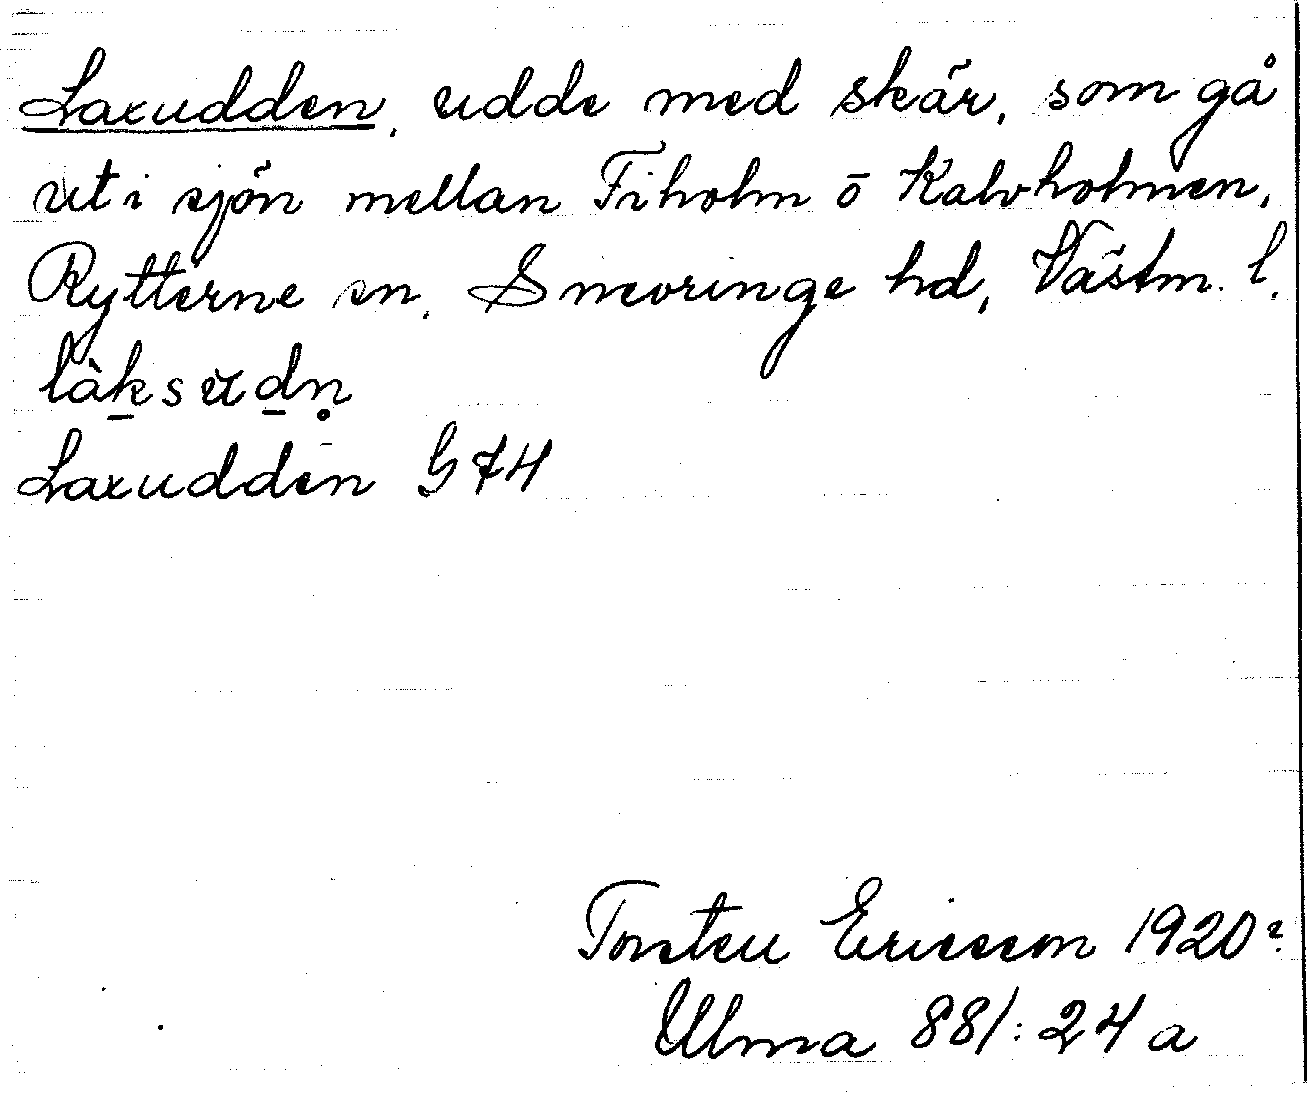 Laxudden, udde med skär, som gå
ut i sjön mellan Fiholm o Kalvholmen,
Rytterne sn. Snevringe hd, Västm. l.
làksu̇dn̥
Laxudden G 74
Torsten Ericsson 1920?
Ulma 881:24 a